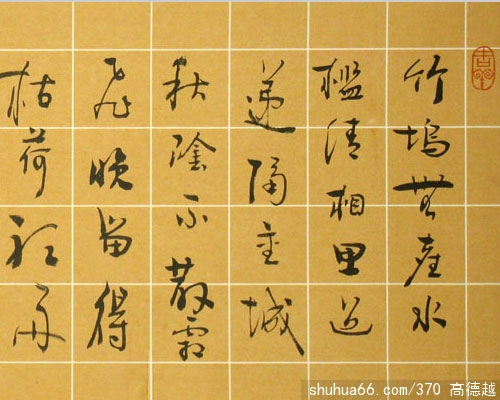 竹塢無塵水
檻清相思迢
遞隔重城
秋陰不散霜
飛晚留得
枯荷聽雨
shuhua66.com/370 高德越